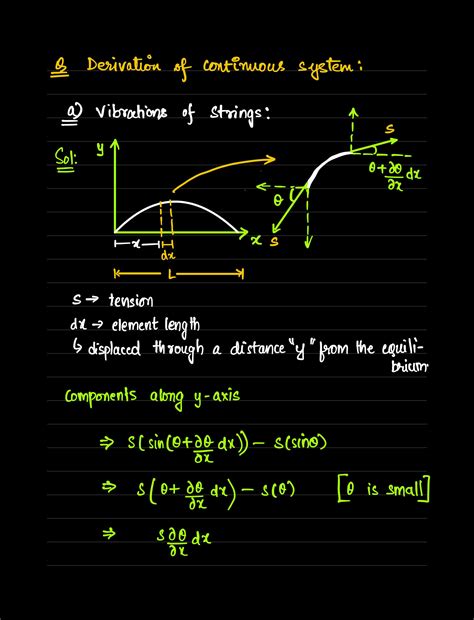 Q Derivation of continuous system:
a) Vibrations of strings:
Sol:
y
x
x
dx
L
S
θ+∂θ/∂x dx
θ
S
S → tension
dx → element length
↳ displaced through a distance "y" from the equili-
brium
Components along y-axis
⇒ S(sin(θ+∂θ/∂x dx)) - S(sinθ)
⇒ S(θ+∂θ/∂x dx) - S(θ) [θ is small]
⇒ S∂θ/∂x dx